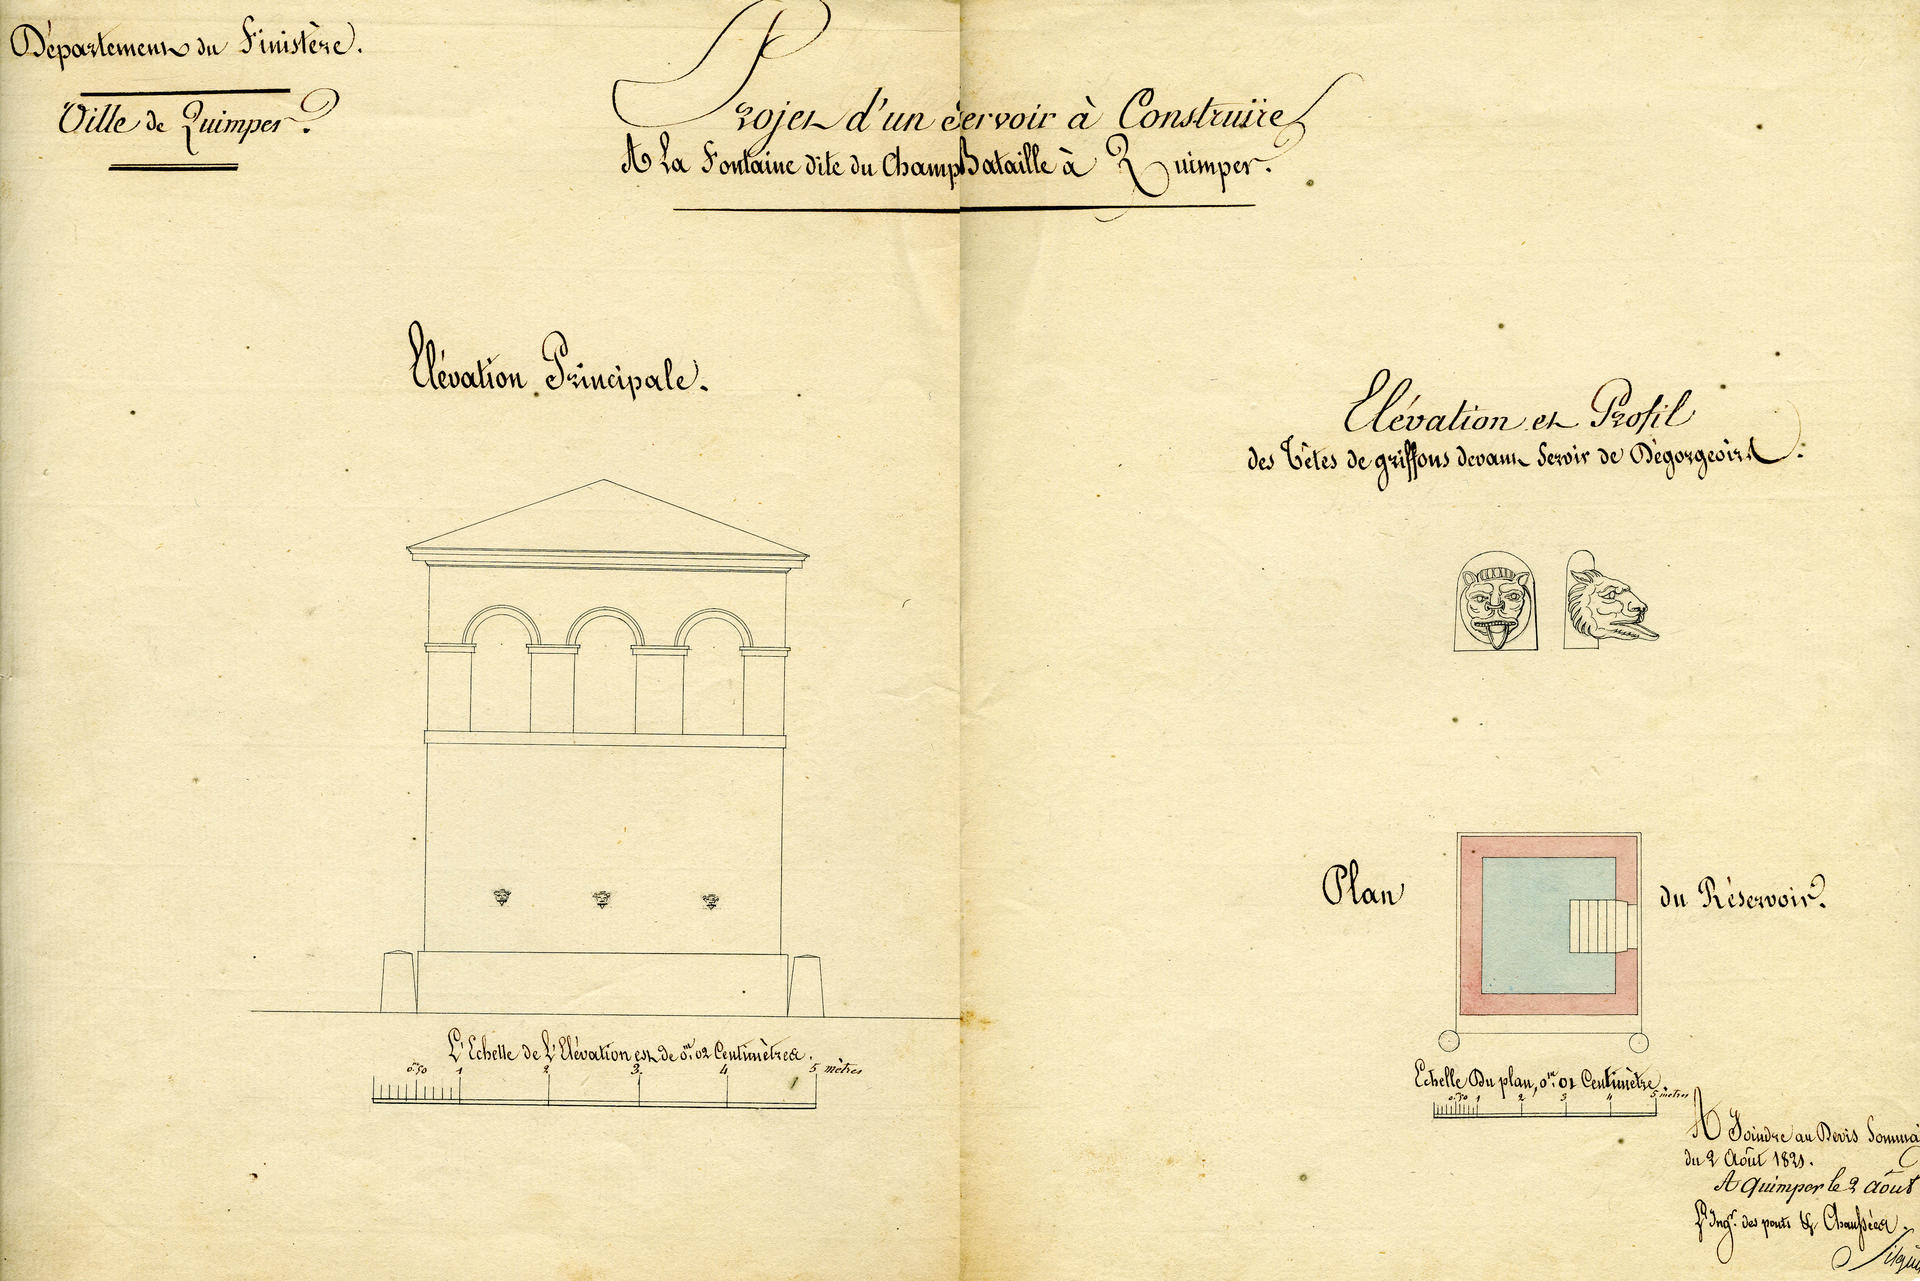 Département du Finistère.
Ville de Quimper.
Projet d'un éervoir à Construire
A La Fontaine dite du Champ Bataille à Quimper.
Elévation Principale.
Elévation et Profil
des Têtes de griffons devant Servir de Dégorgeoirs.
Plan du Réservoir.
L'Echelle de L'Elévation est de 0m,02 Centimètres.
0m,50 1 2 3. 4 5 mètres
Echelle Du plan, 0m,01 Centimètre.
0.50 1 2 3 4 5 mètres
A Joindre au Devis Somma
du 2 Août 1821.
A Quimper le 2 août
L'Ingr. des ponts & Chaussées.